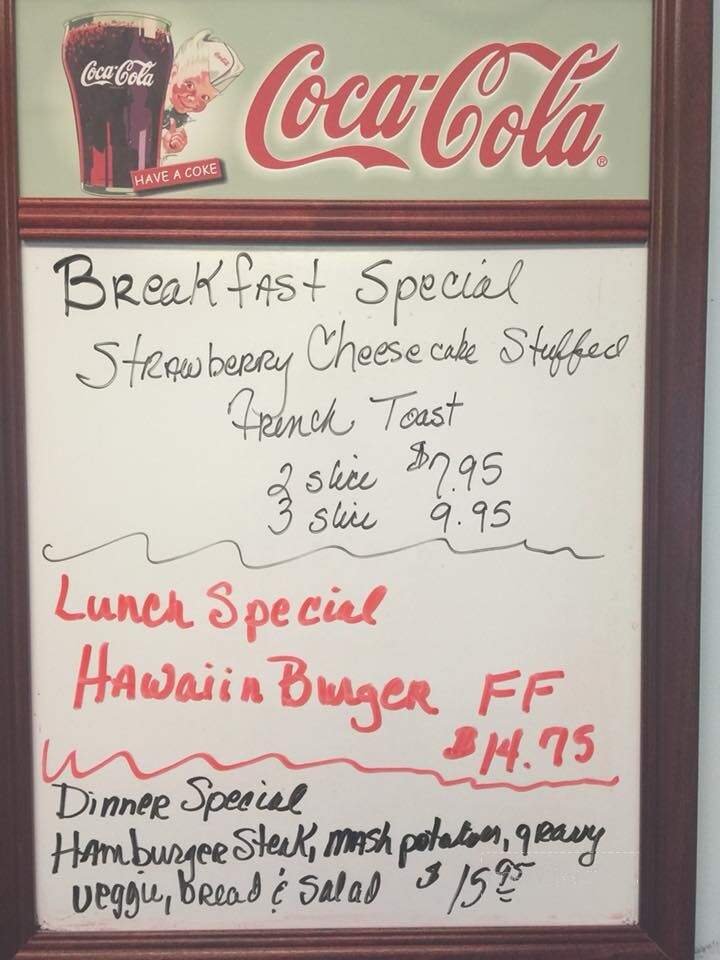 Coca-Cola
Coca-Cola®
HAVE A COKE
Breakfast Special
Strawberry Cheesecake Stuffed
French Toast
2 slice $7.95
3 slice 9.95
Lunch Special
Hawaiin Burger FF
$14.75
Dinner Special
Hamburger Steak, mash potatoes, gravy
veggie, bread & salad $15.95